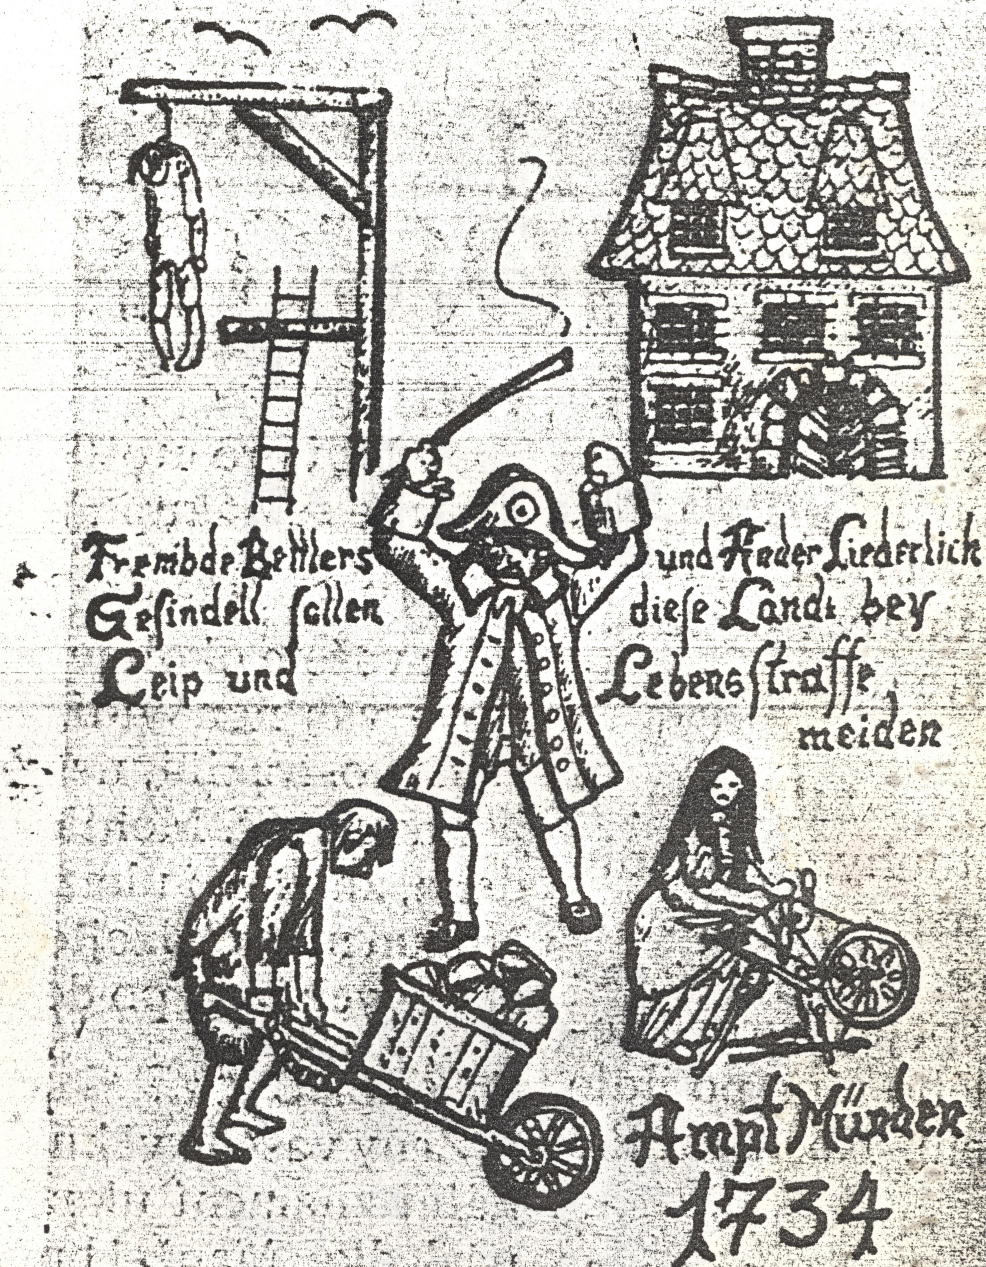 Frembde Bettlers und Ander Liederlich
Gesindell sollen diese Landt bey
Leip und Lebensstraffe
meiden
Ampt Münden
1734